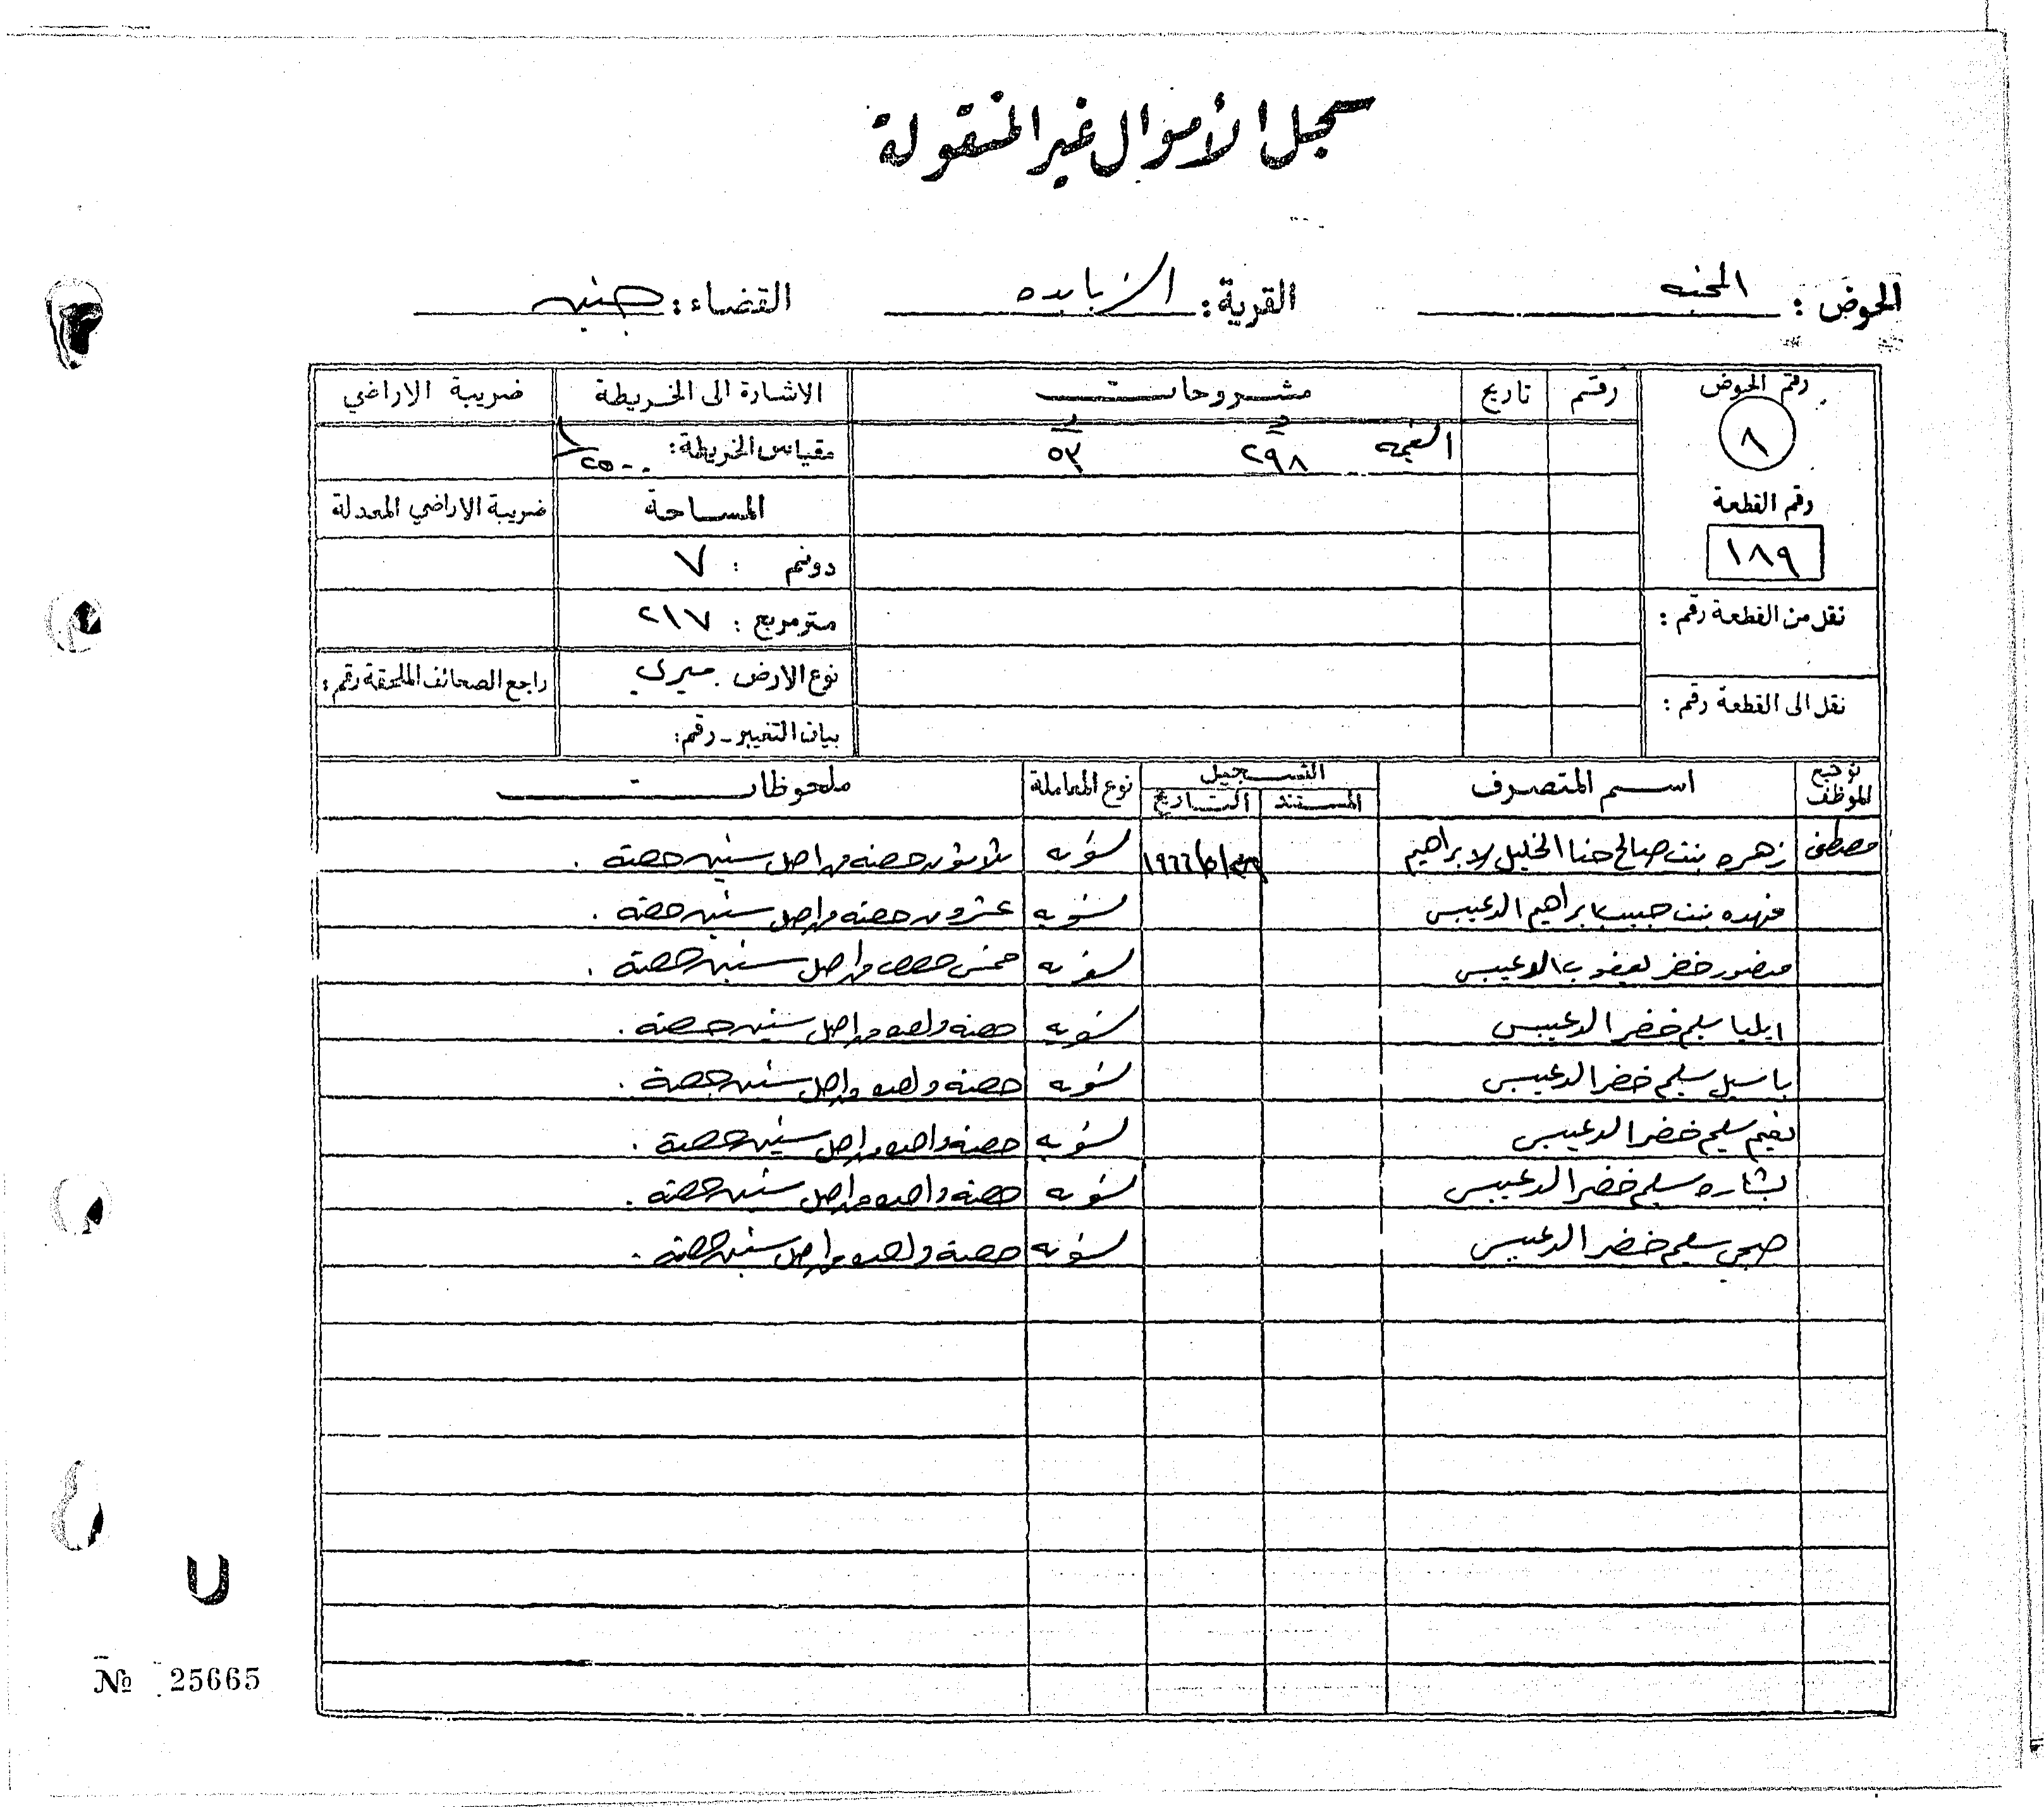 سجل الأموال غير المنقولة
الحوض : المحنه القرية : الزبابده القضاء : جنين
رقم الحوض رقم تاريخ مشروحات الاشارة الى الخريطة ضريبة الاراضي
٨ د ف
القيمه ٢٩٨ ٥٣ مقياس الخريطة : ١/٢٥٠٠
رقم القطعة المساحة ضريبة الاراضي المعدلة
١٨٩ دونم : ٧
نقل من القطعة رقم : متر مربع : ٢١٧
نوع الارض ميري راجع الصحائف الملحقة رقم :
نقل الى القطعة رقم : بيان التغيير - رقم :
توقيع الموظف اسم المتصرف التسجيل نوع المعاملة ملحوظات
المستند التاريخ
مصطفى زهره بنت صالح حنا الخليل الابراهيم ١٩٦٦ تسويه ثلاثون حصه من اصل ستين حصة .
فهده بنت حبيب ابراهيم الدعيبس تسويه عشرون حصه من اصل ستين حصه .
منصور خضر يعقوب الدعيبس تسويه خمس حصص من اصل ستين حصة .
ايليا سليم خضر الدعيبس تسويه حصه واحده من اصل ستين حصة .
باسيل سليم خضر الدعيبس تسويه حصه واحده من اصل ستين حصة .
نعيم سليم خضر الدعيبس تسويه حصه واحده من اصل ستين حصة .
بشاره سليم خضر الدعيبس تسويه حصه واحده من اصل ستين حصة .
صبحي سليم خضر الدعيبس تسويه حصة واحده من اصل ستين حصة .
U
№ 25665